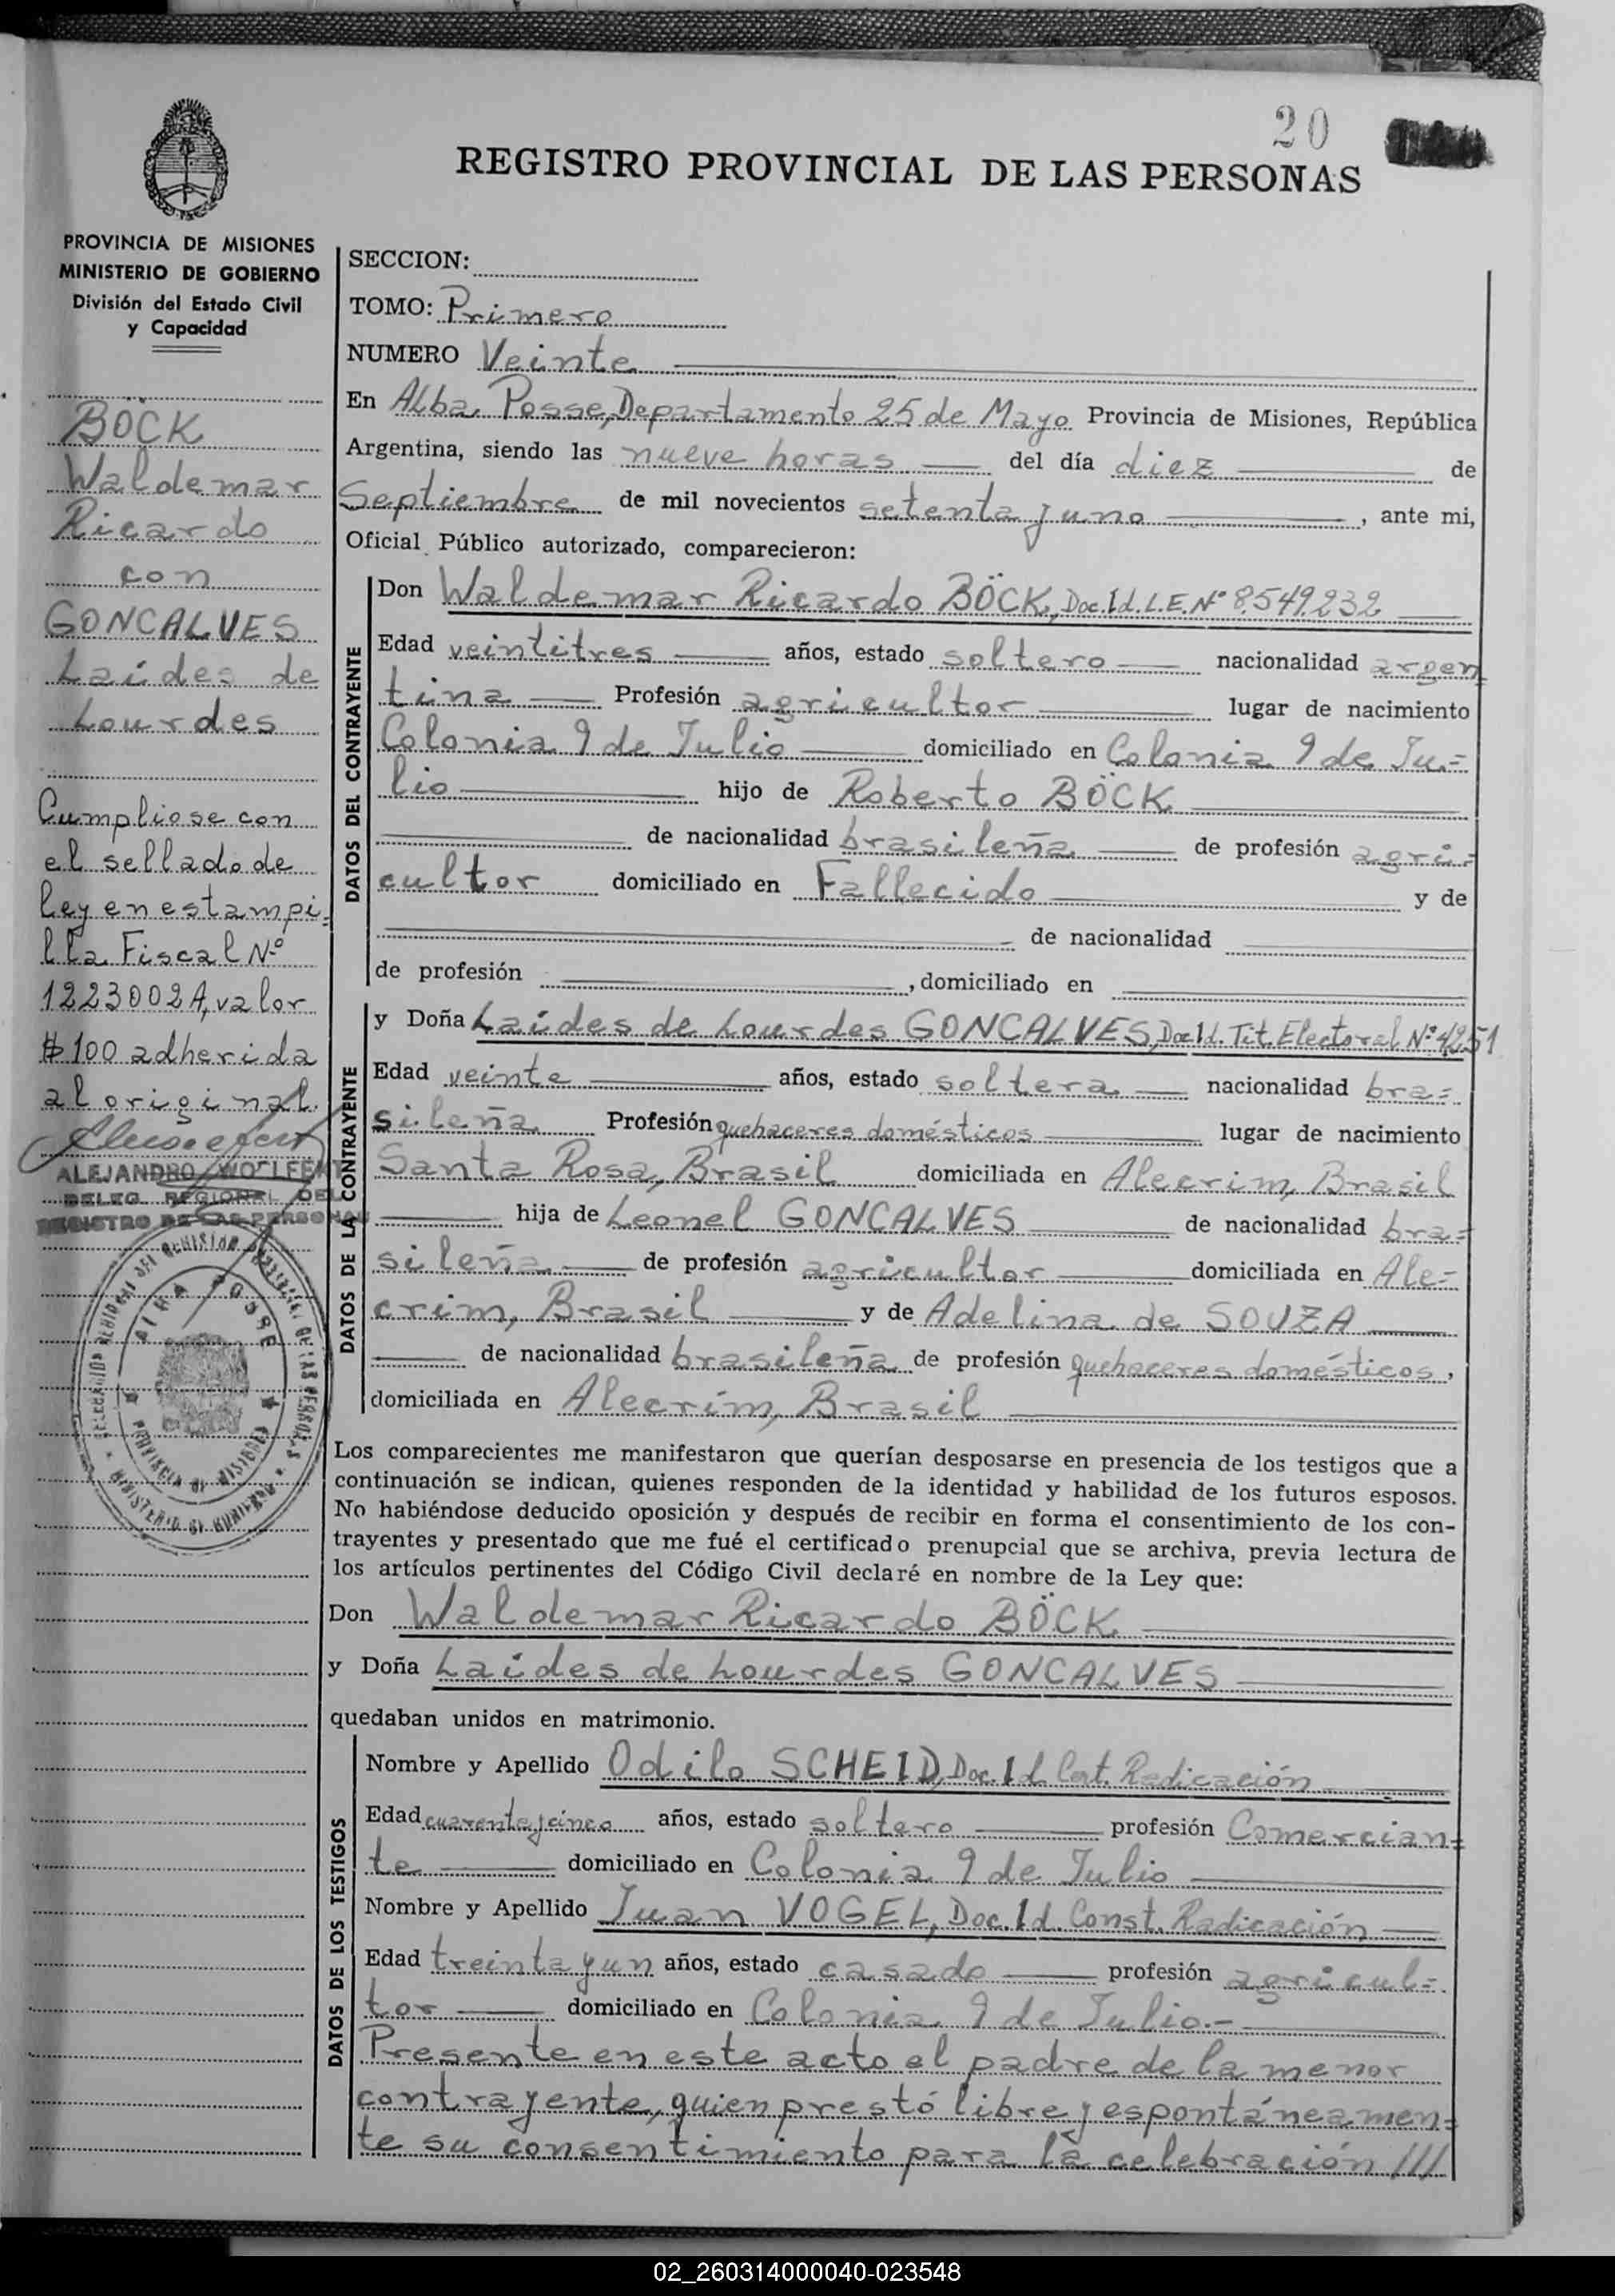 20
REGISTRO PROVINCIAL DE LAS PERSONAS
PROVINCIA DE MISIONES
MINISTERIO DE GOBIERNO
División del Estado Civil
y Capacidad
BÖCK
Waldemar
Ricardo
con
GONCALVES
Laídes de
Lourdes
Cumpliose con
el sellado de
ley en estampi-
lla Fiscal Nº
1223002A, valor
$100 adherida
al original.
ALEJANDRO WOLFEN
DELEG. REGIONAL DEL
REGISTRO DE LAS PERSONAS
ALBA POSSE
PROVINCIA DE MISIONES
MINISTERIO DE GOBIERNO
SECCION:
TOMO: Primero
NUMERO Veinte
En Alba Posse, Departamento 25 de Mayo Provincia de Misiones, República
Argentina, siendo las nueve horas del día diez de
Septiembre de mil novecientos setenta y uno, ante mi,
Oficial Público autorizado, comparecieron:
DATOS DEL CONTRAYENTE
Don Waldemar Ricardo BÖCK, Doc. Id. L.E. Nº 8.549.232
Edad veintitres años, estado soltero nacionalidad argen
tina Profesión agricultor lugar de nacimiento
Colonia 9 de Julio domiciliado en Colonia 9 de Ju=
lio hijo de Roberto BÖCK
de nacionalidad brasileña de profesión agri=
cultor domiciliado en Fallecido y de
de nacionalidad
de profesión , domiciliado en
DATOS DE LA CONTRAYENTE
y Doña Laídes de Lourdes GONCALVES, Doc. Id. Tit. Electoral Nº 4251
Edad veinte años, estado soltera nacionalidad bra=
sileña Profesión quehaceres domésticos lugar de nacimiento
Santa Rosa, Brasil domiciliada en Alecrim, Brasil
hija de Leonel GONCALVES de nacionalidad bra=
sileña de profesión agricultor domiciliada en Ale=
crim, Brasil y de Adelina de SOUZA
de nacionalidad brasileña de profesión quehaceres domésticos,
domiciliada en Alecrim, Brasil
Los comparecientes me manifestaron que querían desposarse en presencia de los testigos que a
continuación se indican, quienes responden de la identidad y habilidad de los futuros esposos.
No habiéndose deducido oposición y después de recibir en forma el consentimiento de los con-
trayentes y presentado que me fué el certificado prenupcial que se archiva, previa lectura de
los artículos pertinentes del Código Civil declaré en nombre de la Ley que:
Don Waldemar Ricardo BÖCK
y Doña Laídes de Lourdes GONCALVES
quedaban unidos en matrimonio.
DATOS DE LOS TESTIGOS
Nombre y Apellido Odilo SCHEID, Doc. Id. Cert. Radicación
Edad cuarenta y cinco años, estado soltero profesión Comercian=
te domiciliado en Colonia 9 de Julio
Nombre y Apellido Juan VOGEL, Doc. Id. Const. Radicación
Edad treinta y un años, estado casado profesión agricul=
tor domiciliado en Colonia 9 de Julio.-
Presente en este acto el padre de la menor
contrayente, quien prestó libre y espontáneamen=
te su consentimiento para la celebración ///
02_260314000040-023548